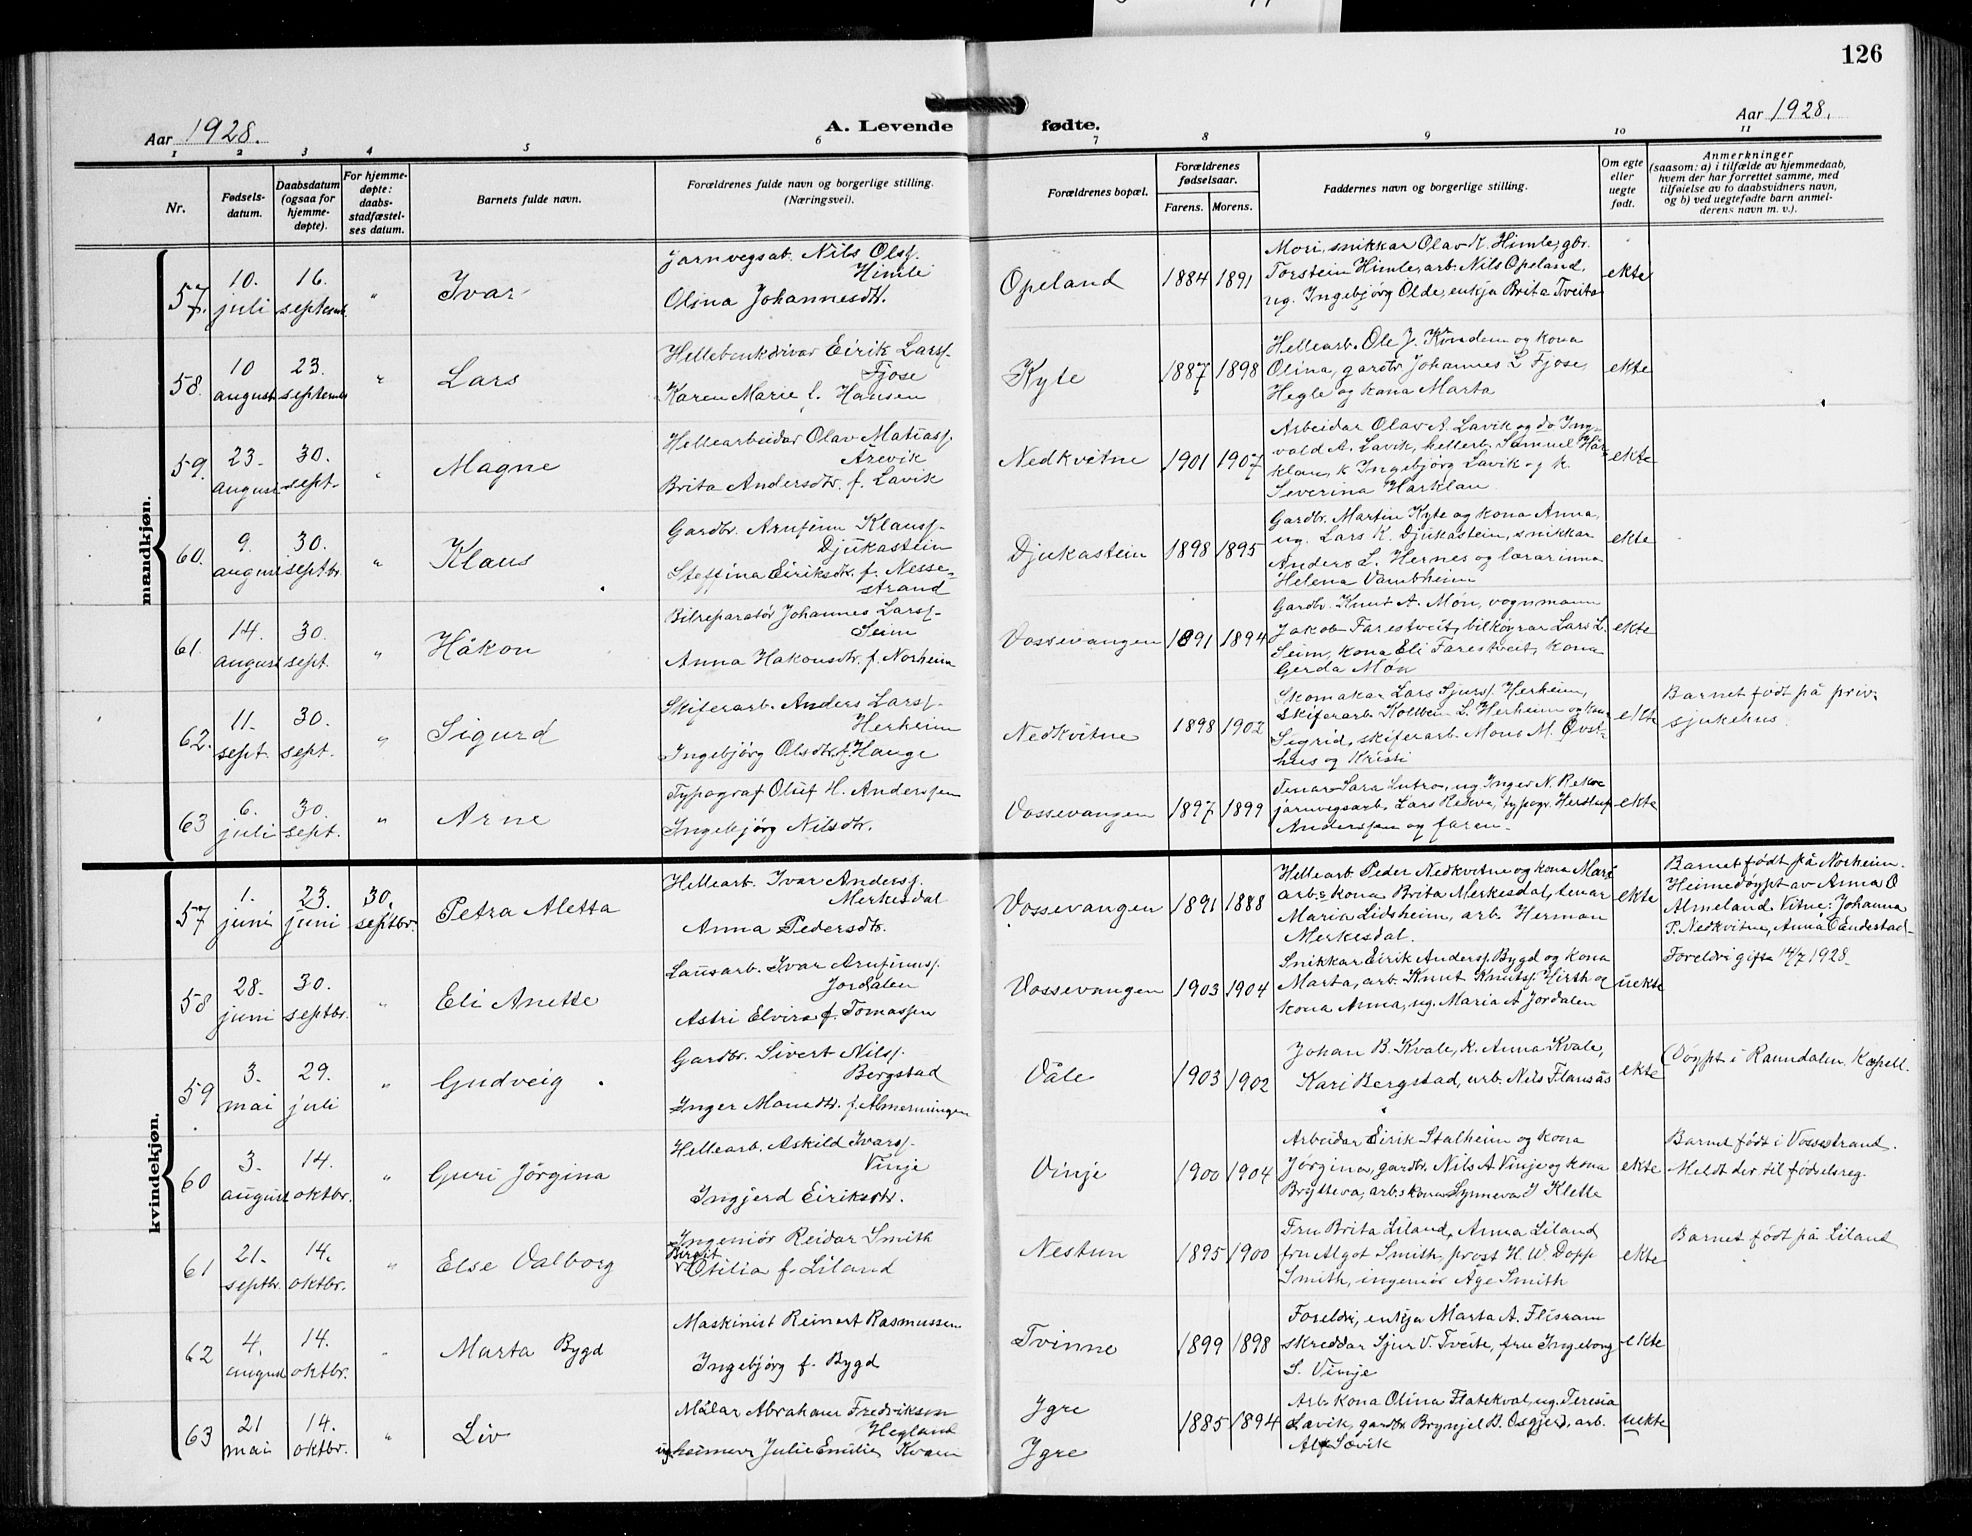 126
Aar 1928.
A. Levende fødte.
Aar 1928.
1 2 3 4 5 6 7 8 9 10 11
Nr.
Fødsels-
datum.
Daabsdatum
(ogsaa for
hjemme-
døpte).
For hjemme-
døpte:
daabs-
stadfæstel-
ses datum.
Barnets fulde navn.
Forældrenes fulde navn og borgerlige stilling.
(Næringsvei).
Forældrenes bopæl.
Forældrenes
fødselsaar.
Farens. Morens.
Faddernes navn og borgerlige stilling.
Om egte
eller
uegte
født.
Anmerkninger
(saasom: a) i tilfælde av hjemmedaab,
hvem der har forrettet samme, med
tilføielse av to daabsvidners navn,
og b) ved uegtefødte barn anmel-
derens navn m. v.).
mandkjøn.
57.
10.
juli
16.
septemb.
"
Ivar
Jarnvegsab. Nils Olsf.
Himle
Olina Johannesdtr.
Opeland
1884 1891
Mori, snikkar Olav K. Himle, gbr.
Torstein Himle, arb. Nils Opeland,
ug. Ingebjørg Olde, enkja Brita Tveita
ekte
58.
10
august
23.
septemb.
"
Lars
Hellebrukdrivar Eirik Larsf.
Fjose
Karen Marie f. Hansen
Kyte
1887 1898
Hellearb. Ole J. Kinden og kona
Olina, gardbr. Johannes L Fjose,
Hegle og kona Marta
ekte
59.
23.
august
30.
sept.
"
Magne
Hellearbeidar Olav Matiasf.
Årevik
Brita Andersdtr. f. Lavik
Nedkvitne
1901 1907
Arbeidar Olav A. Lavik og do Ing-
vald A. Lavik, hellearb. Samuel Har-
klau, k Ingebjørg Lavik og k.
Severina Harklau.
ekte
60.
9.
august
30.
septbr.
"
Klaus
Gardbr. Arnfinn Klausf.
Djukastein
Steffina Eiriksdtr. f. Nesse-
strand
Djukastein
1898 1895
Gardbr. Martin Kyte og kona Anna,
ug. Lars K. Djukastein, snikkar
Anders L. Hernes og lærarinna
Helena Vambheim
ekte
61.
14.
august
30.
sept.
"
Håkon
Bilreparatør Johannes Larsf.
Seim
Anna Hakonsdtr. f. Norheim
Vossevangen
1891 1894
Gardbr. Knut A. Møn, vognmann
Jakob Farestveit, bilkøyrar Lars L.
Seim, kona Eli Farestveit, kona
Gerda Møn
ekte
62.
11.
sept.
30.
sept.
"
Sigurd
Skiferarb. Anders Larsf.
Herheim
Ingebjørg Olsdtr. f. Hauge
Nedkvitne
1898 1902
Skomakar Lars Sjursf. Herheim,
skiferarb. Kolbein L. Herheim og kona
Sigrid, skiferarb. Mons M. Øvst-
hus og Kristi
ekte
Barnet født på priv.
sjukehus.
63
6.
juli
30.
sept.
"
Arne
Typograf Oluf H. Anderssen
Ingebjørg Nilsdtr.
Vossevangen
1897 1899
Tenar Sara Lutro, ug Inger N. Rekve
jarnvegsarb. Lars Rekve, typogr. Herluf
Anderssen og faren.
ekte
kvindekjøn.
57
1.
juni
23.
juni
30.
septbr.
Petra Aletta
Hellearb. Ivar Andersf.
Merkesdal
Anna Pedersdtr.
Vossevangen
1891 1888
Hellearb Peder Nedkvitne og kona Mari
arb.s kona Brita Merkesdal, tenar
Maria Lidsheim, arb. Herman
Merkesdal.
ekte
Barnet født på Norheim.
Heimedøypt av Anna O
Almeland Vitne: Johanna
P. Nedkvitne, Anna O Endestad
58
28.
juni
30.
septbr.
"
Eli Anette
Lausarb. Ivar Arnfinnsf.
Jordalen
Astri Elvira f. Tomassen
Vossevangen
1903 1904
Snikkar Eirik Andersf. Bygd og kona
Marta, arb. Knut Knutsf. Hirth og
kona Anna, ug. Maria A Jordalen
uekte
Foreldri gifte 14/7 1928
59
3.
mai
29.
juli
"
Gudveig
Gardbr. Sivert Nilsf.
Bergstad
Inger Monsdtr. f. Almenningen
Våle
1903 1902
Johan B. Kvale, k. Anna Kvale,
Kari Bergstad, arb. Nils Flansås
ekte
Døypt i Raundalen Kapell.
60
3.
august
14.
oktbr.
"
Guri Jørgina
Hellearb. Askild Ivarsf.
Vinje
Ingjerd Eiriksdtr.
Vinje
1900 1904
Arbeidar Eirik Stalheim og kona
Jørgina, gardbr. Nils A Vinje og kona
Brytteva, arb.s kona Synneva I Klette
ekte
Barnet født i Vossestrand.
Meldt der til fødselsreg.
61
21.
septbr.
14.
oktbr.
"
Else Valborg
Ingeniør Reidar Smith
Birgit
Otilia f. Liland
Nestun
1895 1900
Fru Brita Liland, Anna Liland
fru Algot Smith, prost H. W Dopp
Smith, ingeniør Åge Smith
ekte
Barnet født på Liland
62
4.
august
14.
oktbr.
"
Marta Bygd
Maskinist Reinert Rasmussen
Ingebjørg f. Bygd
Tvinne
1899 1898
Foreldri, enkja Marta A. Flisram
skreddar Sjur V. Tveite, fru Ingeborg
S. Vinje
ekte
63
21
mai
14.
oktbr.
"
Liv
Målar Abraham Fredriksen
Hegland
ug heimev. Julie Emilie Kvam
Ygre
Ygre
1885 1894
Arb. kona Olina Flatekval, ug. Teresia
Lavik, gardbr Brynjel B. Osgjerd, arb.
Alf Sævik
uekte